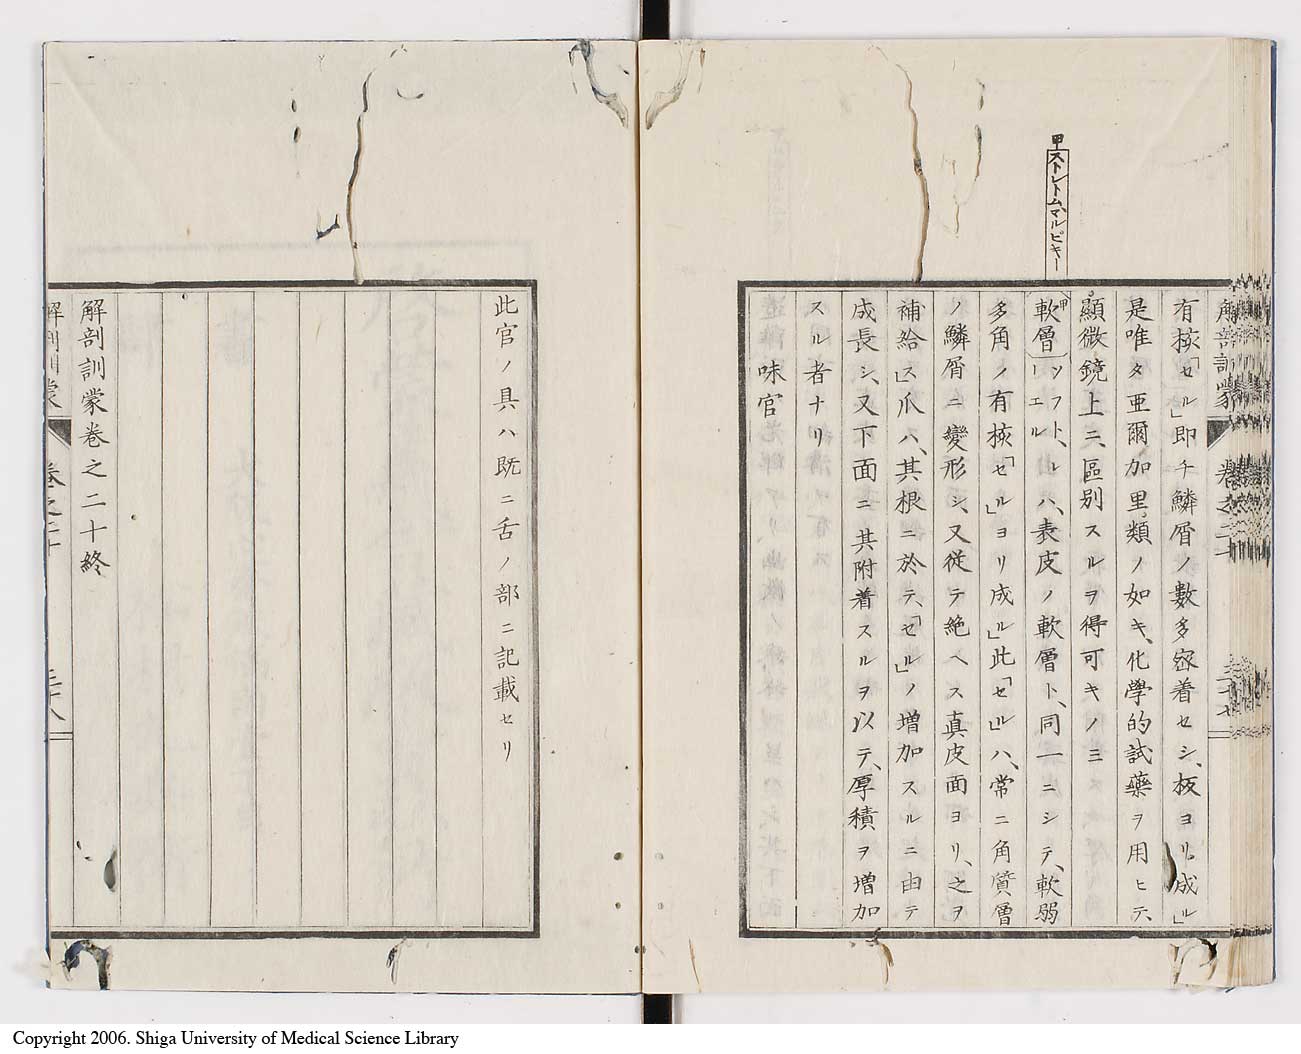 甲ストレトム、マルピキー
解剖訓蒙 卷之二十
有核「セル」即チ鱗屑ノ數多密着セシ、板ヨリ成ル」
是唯タ亜爾加里類ノ如キ、化學的試藥ヲ用ヒテ、
顯微鏡上ニ、區別スルヲ得可キノミ
軟層甲ソフト、レーエルハ、表皮ノ軟層ト、同一ニシテ、軟弱
多角ノ有核「セル」ヨリ成ル」此「セル」ハ、常ニ角質層
ノ鱗屑ニ變形シ、又従テ絶ヘス真皮面ヨリ、之ヲ
補給ス」爪ハ、其根ニ於テ、「セル」ノ増加スルニ由テ
成長シ、又下面ニ其附着スルヲ以テ、厚積ヲ増加
スル者ナリ
味官
此官ノ具ハ既ニ舌ノ部ニ記載セリ
解剖訓蒙卷之二十終
解剖訓蒙 卷之二十
Copyright 2006. Shiga University of Medical Science Library